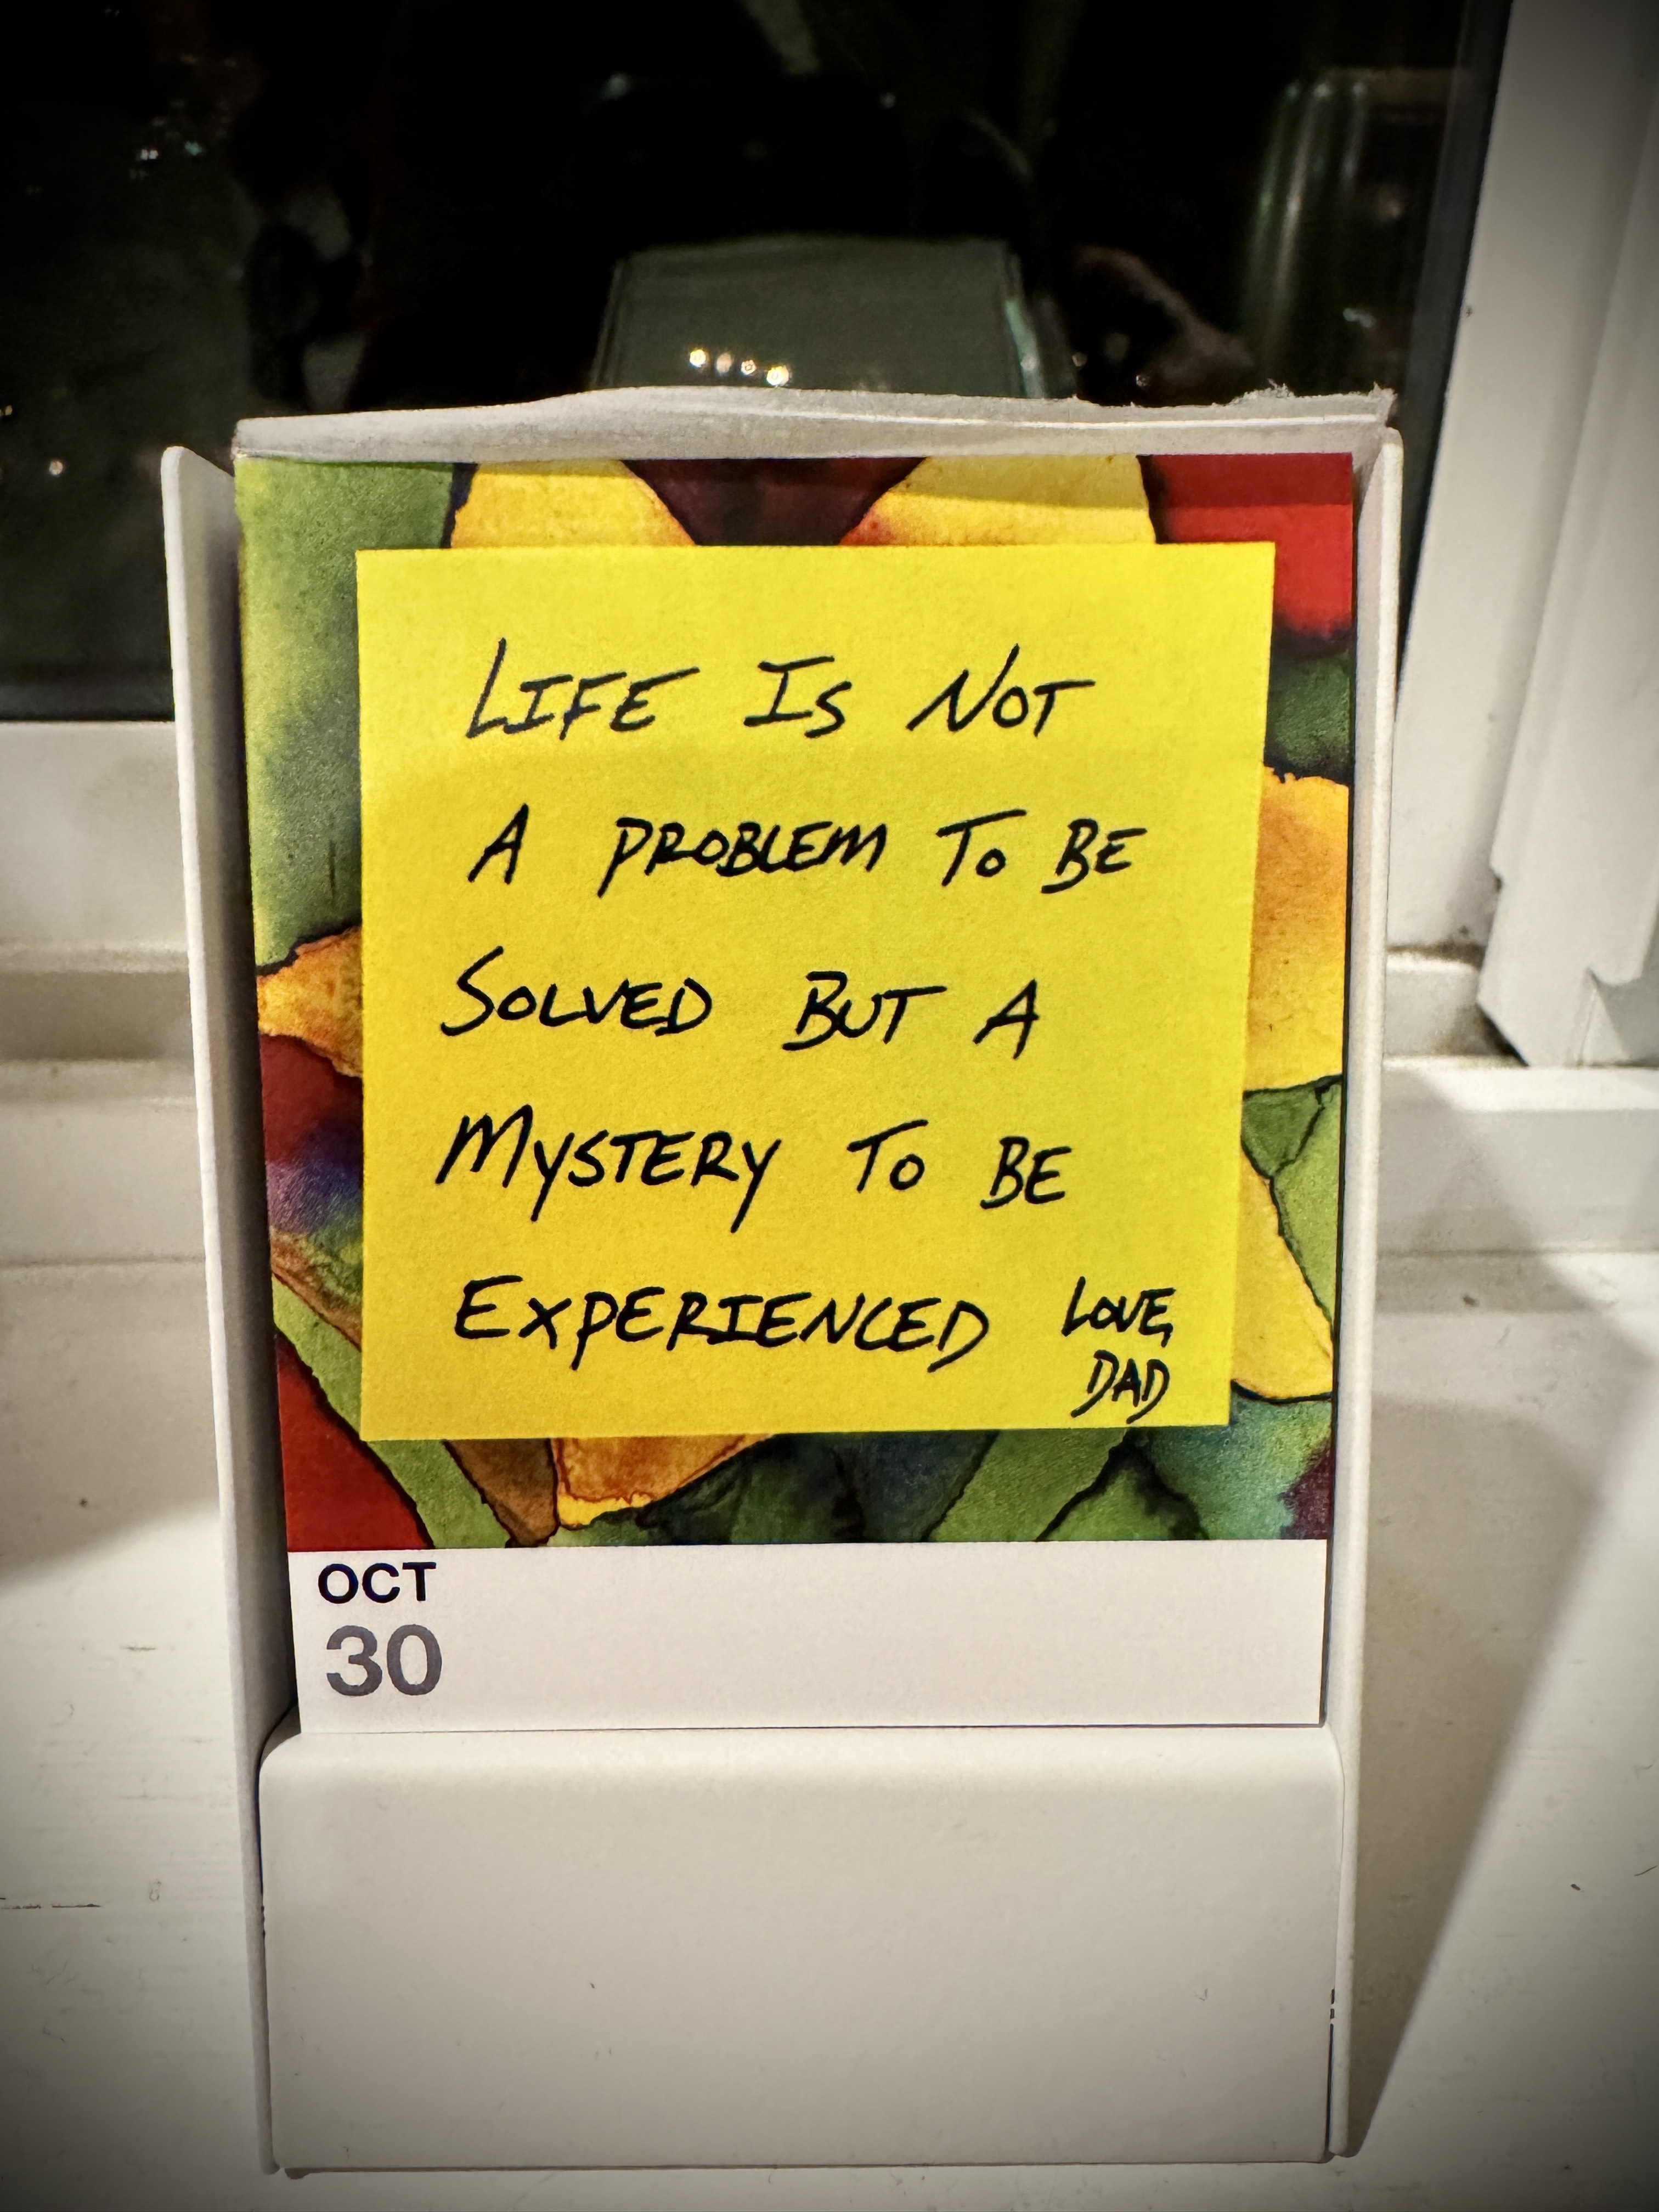 LIFE IS NOT
A PROBLEM TO BE
SOLVED BUT A
MYSTERY TO BE
EXPERIENCED LOVE,
DAD
OCT
30